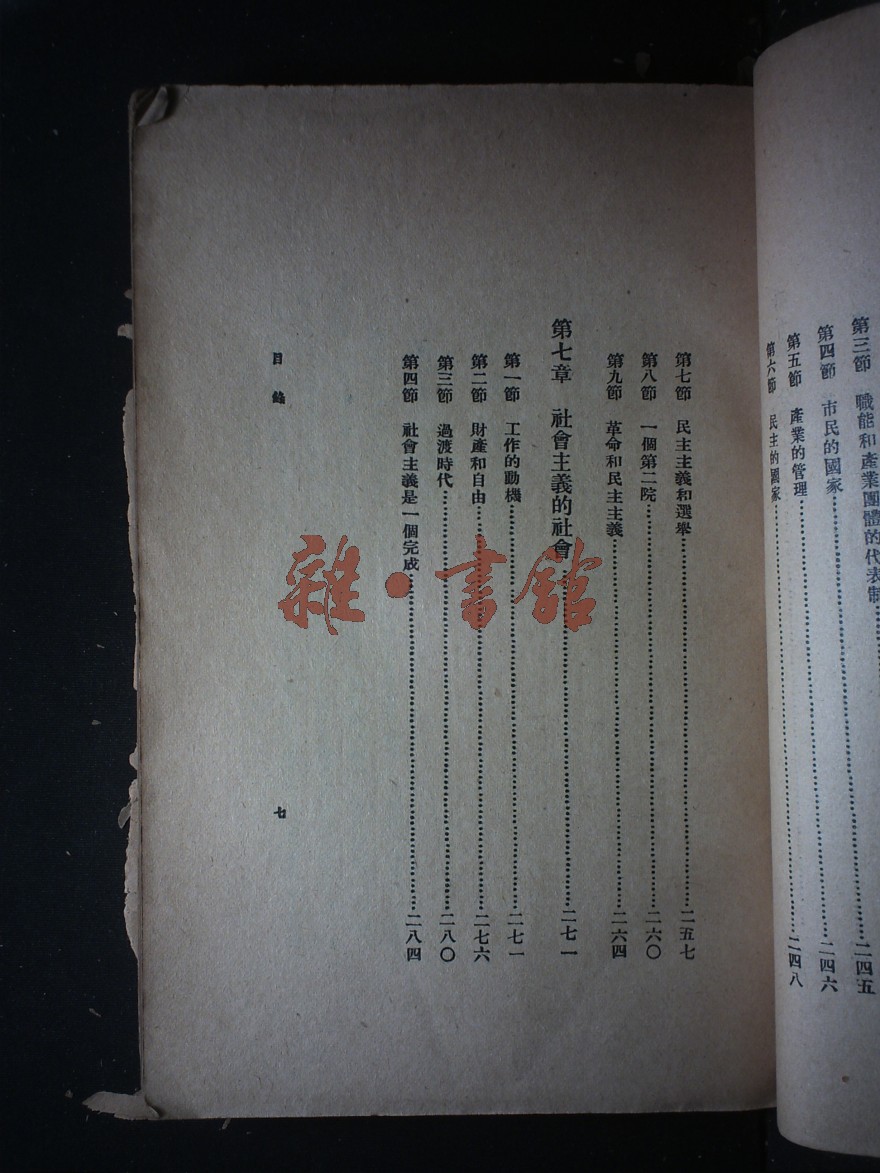 第三節　職能和產業團體的代表制……二四五
第四節　市民的國家……二四六
第五節　產業的管理……二四八
第六節　民主的國家……
第七節　民主主義和選舉……二五七
第八節　一個第二院……二六〇
第九節　革命和民主主義……二六四
第七章　社會主義的社會……二七一
第一節　工作的動機……二七一
第二節　財產和自由……二七六
第三節　過渡時代……二八〇
第四節　社會主義是一個完成……二八四
目錄
七
雜·書館